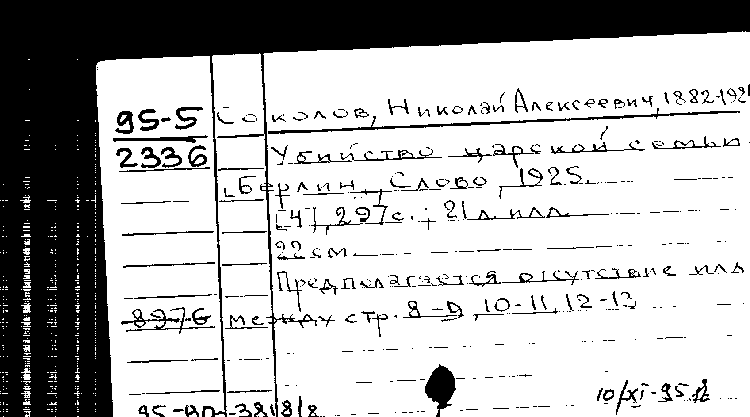 95-5 Соколов, Николай Алексеевич, 1882-192
2336 Убийство царской семьи.
Берлин, Слово, 1925.
[4], 297с.; 21л. илл.
22см.
Предполагается отсутствие илл
8976 между стр. 8-9, 10-11, 12-13
10/XI-95